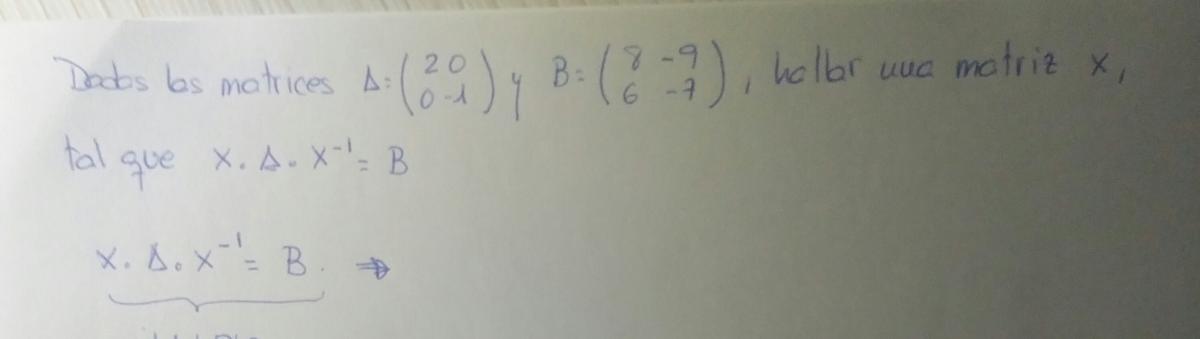 Dadas las matrices A=(2 0 0 -1) y B=(8 -9 6 -7), hallar una matriz x,
tal que x · A · x⁻¹ = B
x · A · x⁻¹ = B. ⇒